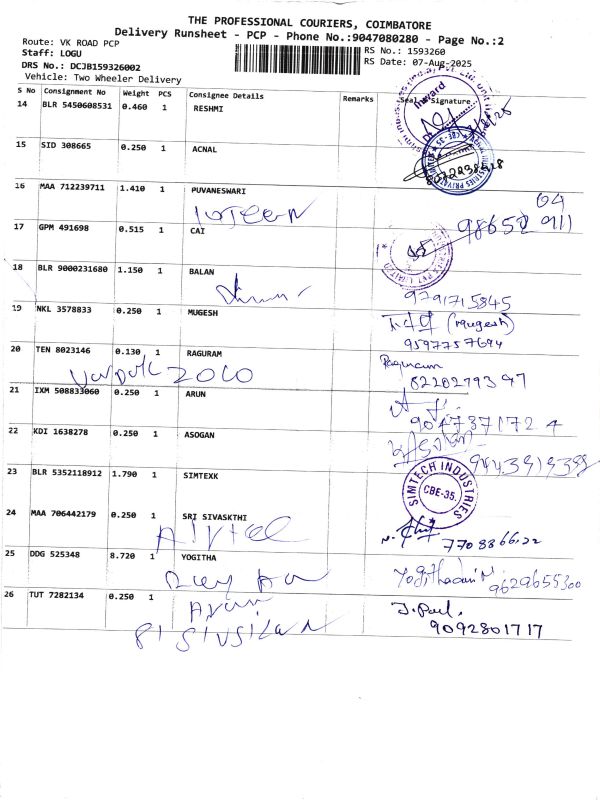 THE PROFESSIONAL COURIERS, COIMBATORE
Delivery Runsheet - PCP - Phone No.:9047080280 - Page No.:2
Route: VK ROAD PCP
RS No.: 1593260
Staff: LOGU
RS Date: 07-Aug-2025
DRS No.: DCJB159326002
Vehicle: Two Wheeler Delivery
S No Consignment No Weight PCS Consignee Details Remarks Seal Signature
14 BLR 5450608531 0.460 1 RESHMI
Inward
15 SID 308665 0.250 1 ACNAL
16 MAA 712239711 1.410 1 PUVANESWARI
04
98652 911
17 GPM 491698 0.515 1 CAI
18 BLR 9000231680 1.150 1 BALAN
9791715845
19 NKL 3578833 0.250 1 MUGESH
(Mugesh)
9597757694
20 TEN 8023146 0.130 1 RAGURAM
Raguram
21 IXM 508833060 0.250 1 ARUN
9047371724
22 KDI 1638278 0.250 1 ASOGAN
23 BLR 5352118912 1.790 1 SIMTEXK
SIMTECH INDUSTRIES
CBE-35.
24 MAA 706442179 0.250 1 SRI SIVASKTHI
Airtel
7708866122
25 DDG 525348 8.720 1 YOGITHA
9629655300
26 TUT 7282134 0.250 1
Arun
J. Paul.
9092801717